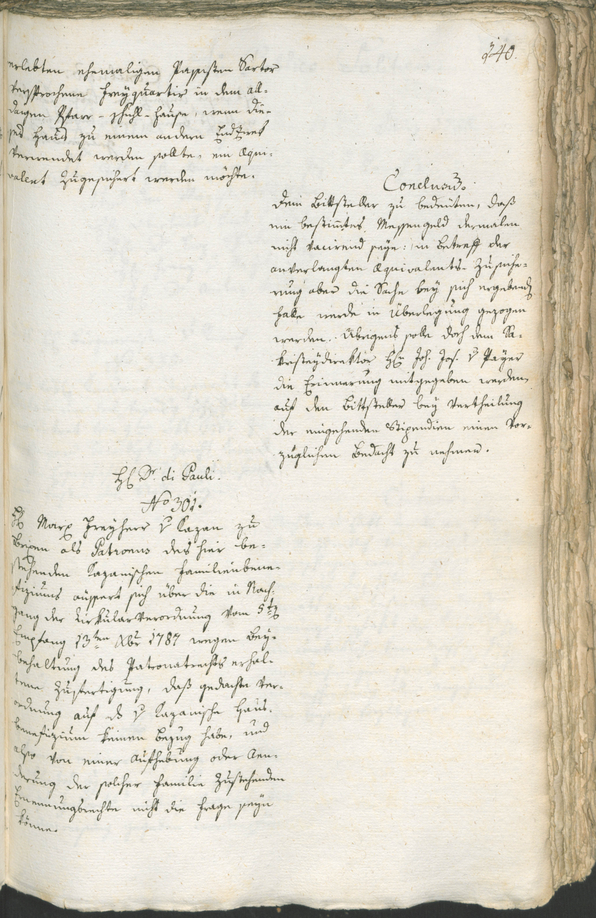 240.
erlebten ehemaligen Papisten Sartor
versprochene Freyquartir in dem all-
daigen Pfarr-schull-hause, wenn die-
ses Haus zu einem andern Endzwek
verwendet werden sollte, ein Equi-
valent zugesichert werden möchte.
Conclusum.
Dem Bittsteller zu bedeuten, daß
ein bestimtes Messengeld dermalen
nicht vacirend seye: in Betreff der
anverlangten Equivalents-Zusiche-
rung aber die Sache bey sich ergebend
falle werde in Überlegung gezogen
werden. Übrigens solle doch dem Sa-
kristeydirektor H. Joh. Jos. v Payer
die Erinnerung mitgegeben werden,
auf den Bittsteller bey Vertheilung
der eingehenden Stipendien einen vor-
züglichen Bedacht zu nehmen.
H. Dr. di Pauli.
No 301.
H. Marx Freyherr v Cazan zu
Brixen als Patronus des hier be-
stehenden Cazanischen Familienbene-
fiziums äussert sich über die in Nach-
gang der Cirkularverordnung vom 5ten
Empfang 13ten Xbr 1787 wegen Bey-
behaltung des Patronatrechts erhal-
tene Zufertigung, daß gedachte Ver-
ordnung auf das v Cazanische Haus-
benefizium keinen Bezug habe, und
also von einer Aufhebung oder Aen-
derung der solcher Familie zustehenden
Ernennungsrechte nicht die Frage seyn
könne.